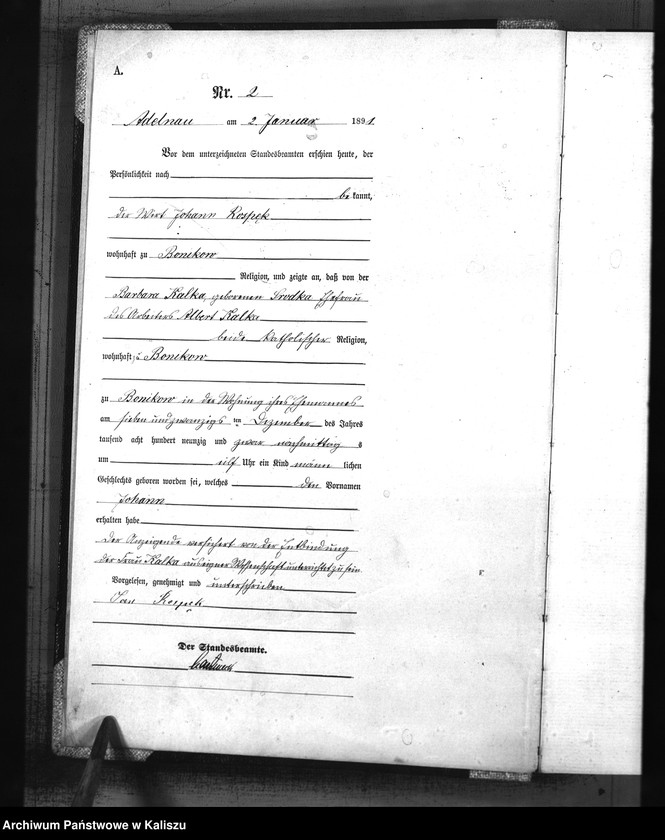 A.
Nr. 2
Adelnau am 2. Januar 1891.
Vor dem unterzeichneten Standesbeamten erschien heute, der
Persönlichkeit nach
be kannt,
der Wirt Johann Kospek
wohnhaft zu Bonikow
Religion, und zeigte an, daß von der
Barbara Kalka, geborenen Srodka Ehefrau
des Arbeiters Albert Kalka
beide katholischer Religion,
wohnhaft zu Bonikow
zu Bonikow in der Wohnung ihres Ehemannes
am sieben und zwanzigsten Dezember des Jahres
tausend acht hundert neunzig und zwar nachmittag s
um elf Uhr ein Kind männ lichen
Geschlechts geboren worden sei, welches den Vornamen
Johann
erhalten habe.
Der Anzeigende versichert von der Entbindung
der Frau Kalka aus eigner Wissenschaft unterrichtet zu sein
Vorgelesen, genehmigt und unterschrieben
Jan Kospek
Der Standesbeamte.
Archiwum Państwowe w Kaliszu